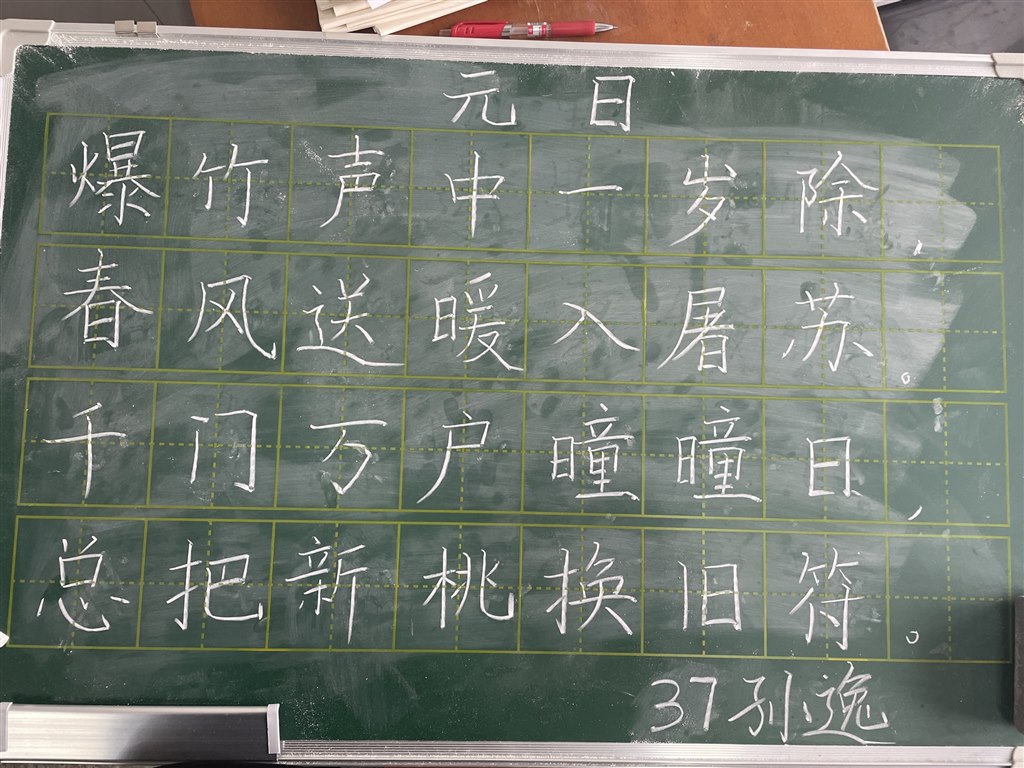 元日
爆竹声中一岁除，
春风送暖入屠苏。
千门万户曈曈日，
总把新桃换旧符。
37孙逸